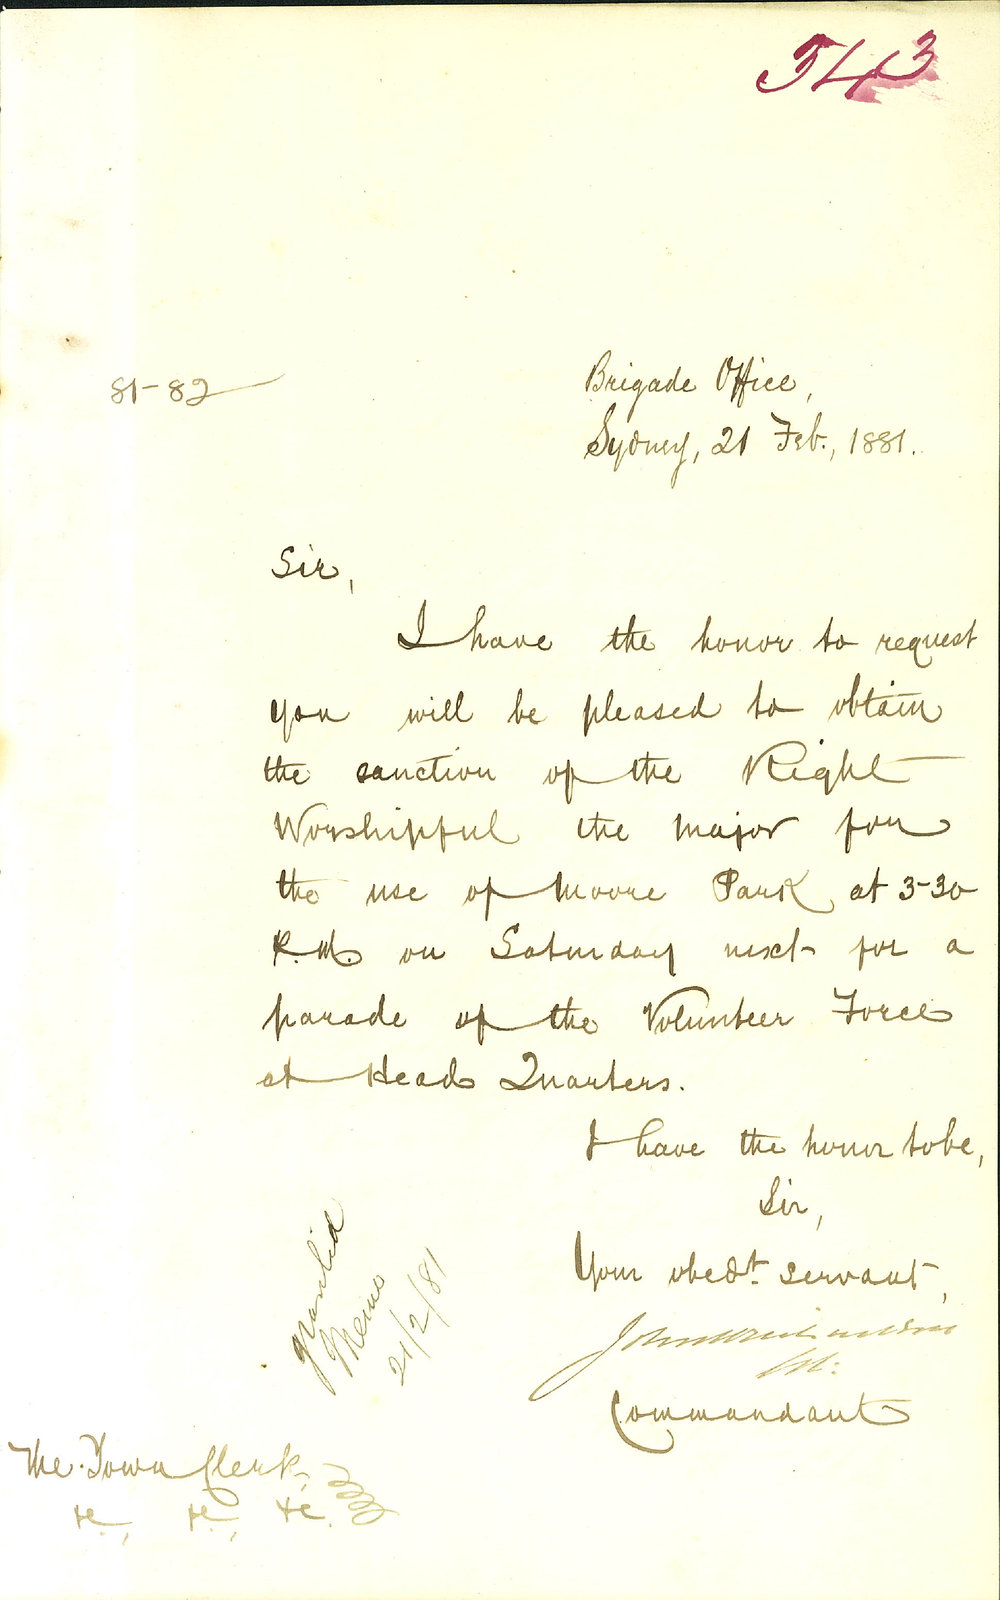 543
81-82
Brigade Office,
Sydney, 21 Feb., 1881.
Sir,
I have the honor to request
you will be pleased to obtain
the sanction of the Right
Worshipful the Major for
the use of Moore Park at 3-30
P.M. on Saturday next for a
parade of the Volunteer Force
at Head Quarters.
I have the honor to be,
Sir,
Your obedt. servant,
Commandant
granted
Memo
21/2/81
The Town Clerk,
&c., &c., &c.